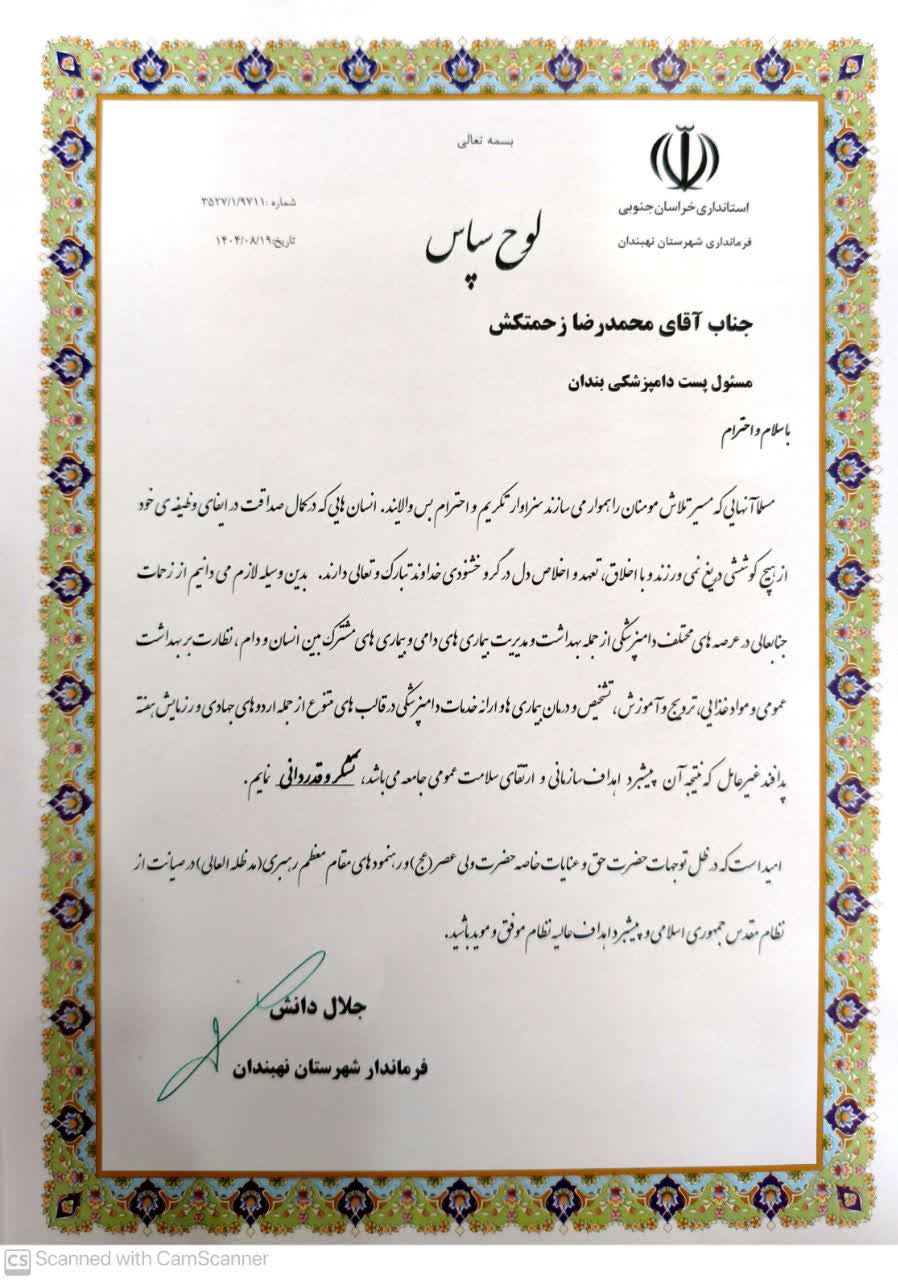 بسمه تعالی
استانداری خراسان جنوبی
فرمانداری شهرستان نهبندان
شماره :۳۵۲۷/۱/۹۷۱۱
تاریخ:۱۴۰۴/۰۸/۱۹
لوح سپاس
جناب آقای محمدرضا زحمتکش
مسئول پست دامپزشکی بندان
با سلام و احترام
مسلما آنهایی که مسیر تلاش مومنان را هموار می سازند سزاوار تکریم و احترام بس والایند. انسان هایی که در کمال صداقت در ایفای وظیفه ی خود
از هیچ کوششی دریغ نمی ورزند و با اخلاق، تعهد و اخلاص دل در گرو خشنودی خداوند تبارک و تعالی دارند. بدین وسیله لازم می دانیم از زحمات
جنابعالی در عرصه های مختلف دامپزشکی از جمله بهداشت و مدیریت بیماری های دامی و بیماری های مشترک بین انسان و دام ، نظارت بر بهداشت
عمومی و مواد غذایی، ترویج و آموزش، تشخیص و درمان بیماری ها و ارائه خدمات دامپزشکی در قالب های متنوع از جمله اردوهای جهادی و رزمایش هفته
پدافند غیرعامل که نتیجه آن پیشبرد اهداف سازمانی و ارتقای سلامت عمومی جامعه می باشد، تشکر و قدردانی نمایم.
امید است که در ظل توجهات حضرت حق و عنایات خاصه حضرت ولی عصر(عج) و رهنمودهای مقام معظم رهبری(مدظله العالی) در صیانت از
نظام مقدس جمهوری اسلامی و پیشبرد اهداف عالیه نظام موفق و موید باشید.
جلال دانش
فرماندار شهرستان نهبندان
CS Scanned with CamScanner